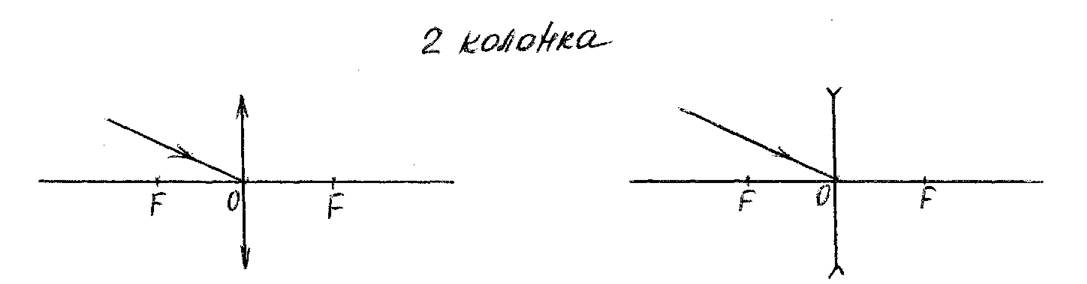 2 колонка
F O F F O F